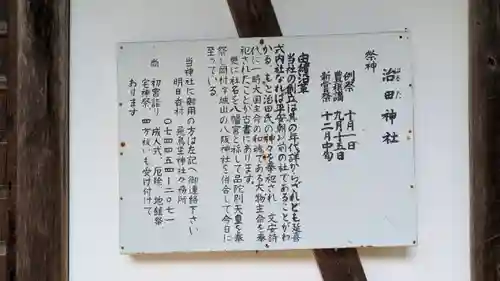 祭神
治田神社
はるた
例祭 十月一日
豊穣講 九月十五日
新嘗祭 十二月中旬
由緒沿革
当社の創立は其の年代詳かならざれども延喜
式内社なれば平安朝以前の社であることがわ
かる。もと治田氏の神々を奉祀され 文安詩
代に一時大国主命の和魂である大物主命を奉
祀されたことが古書にあります。
更に社名を八幡宮と称して品陀別天皇を奉
祭し岡村は城山の八阪神社を併合して今日に
至っている
当神社に御用の方は左記へ御連絡下さい
明日香村 飛鳥坐神社々務所
〇七四四五四―二〇七一
尚 初宮詣り 成人式、厄除、地鎮祭
宅神祭、四方祓いも受け付けて
あります